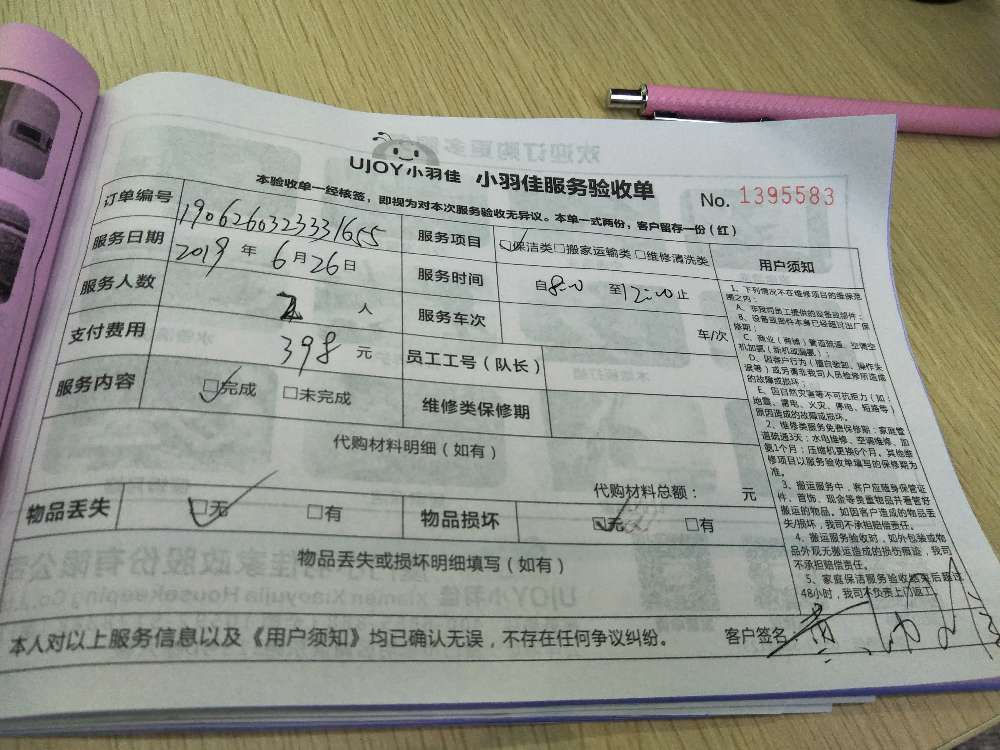 UJOY小羽佳 小羽佳服务验收单
No. 1395583
本验收单一经核签，即视为对本次服务验收无异议。本单一式两份，客户留存一份（红）
订单编号 19062603233331655 服务项目 ☑保洁类 □搬家运输类 □维修清洗类 用户须知
服务日期 2019 年 6 月 26 日 服务时间 自8:00 至12:00止
服务人数 2 人 服务车次 车/次
支付费用 398 元 员工工号（队长）
服务内容 ☑完成 □未完成 维修类保修期
代购材料明细（如有）
代购材料总额： 元
物品丢失 ☑无 □有 物品损坏 ☑无 □有
物品丢失或损坏明细填写（如有）
本人对以上服务信息以及《用户须知》均已确认无误，不存在任何争议纠纷。 客户签名：黄
1、下列情况不在维修项目的维保范
围之内：
A、非我司员工提供的设备或部件；
B、设备或部件本身已经超过出厂保
修期；
C、商业（商铺）管道疏通、空调空
机加氨（新机或漏氨）；
D、因客户行为（擅自装卸、操作失
误等）或另请非我司人员检修所造成
的故障或损坏；
E、因自然灾害等不可抗拒力（如：
地震、雷电、火灾、停电、短路等）
原因造成的故障或损坏。
2、维修类服务免费保修期：家庭管
道疏通3天；水电维修、空调维修、加
氨1个月；压缩机更换6个月。其他维
修项目以服务验收单填写的保修期为
准。
3、搬运服务中，客户应随身保管证
件、首饰、现金等贵重物品并看管好
搬运的物品。如因客户造成的物品丢
失/损坏，我司不承担赔偿责任。
4、搬运服务验收时，如外包装或物
品外观无搬运造成的损伤痕迹，我司
不承担赔偿责任。
5、家庭保洁服务验收结束后超过
48小时，我司不负责上门返工。